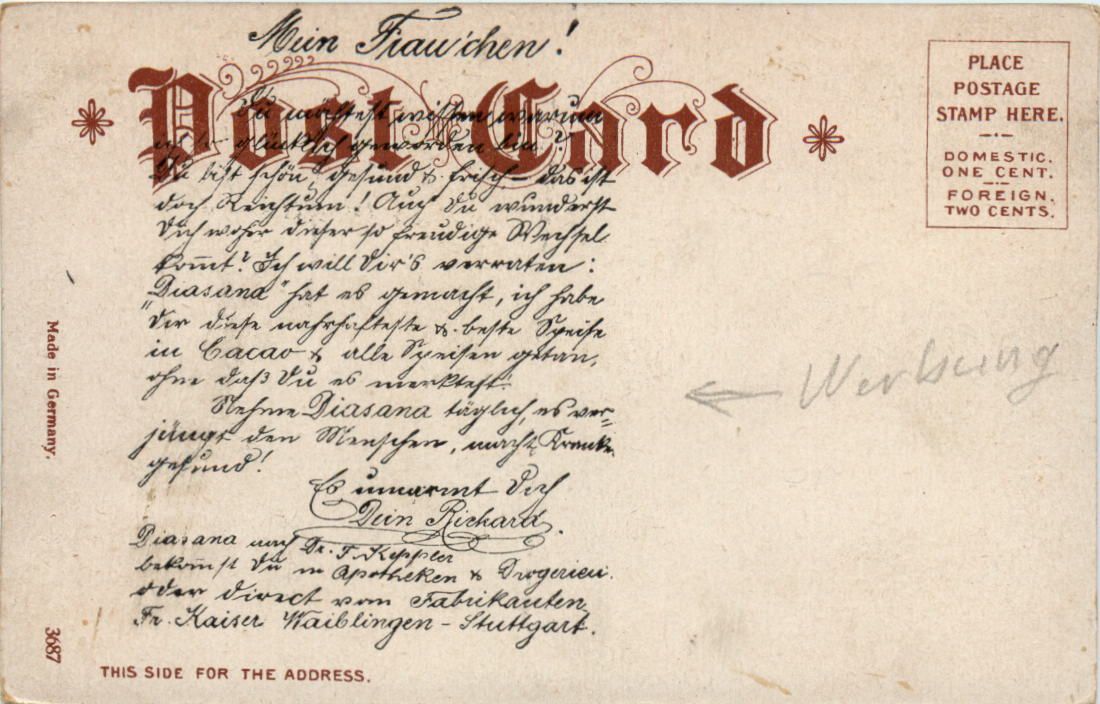 Mein Frau'chen!
Post Card
Du möchtest wissen warum
ich so glücklich geworden bin?
Du bist schön, gesund & frisch - das ist
doch Reichtum! Auch Du wunderst
Dich woher dieser so freudige Wechsel
kom̄t? Ich will Dir's verraten:
„Diasana" hat es gemacht, ich habe
Dir diese nahrhafteste & beste Speise
in Cacao & alle Speisen getan,
ohne daß Du es merktest.
Nehme Diasana täglich, es ver-
jüngt den Menschen, macht Kranke
gesund!
Es umarmt Dich
Dein Richard.
Diasana nach Dr. F. Keppler
bekom̄st Du in Apotheken & Drogerien.
oder direct vom Fabrikanten
Fr. Kaiser Waiblingen - Stuttgart.
PLACE
POSTAGE
STAMP HERE.
DOMESTIC.
ONE CENT.
FOREIGN.
TWO CENTS.
Werbung
Made in Germany.
3687
THIS SIDE FOR THE ADDRESS.